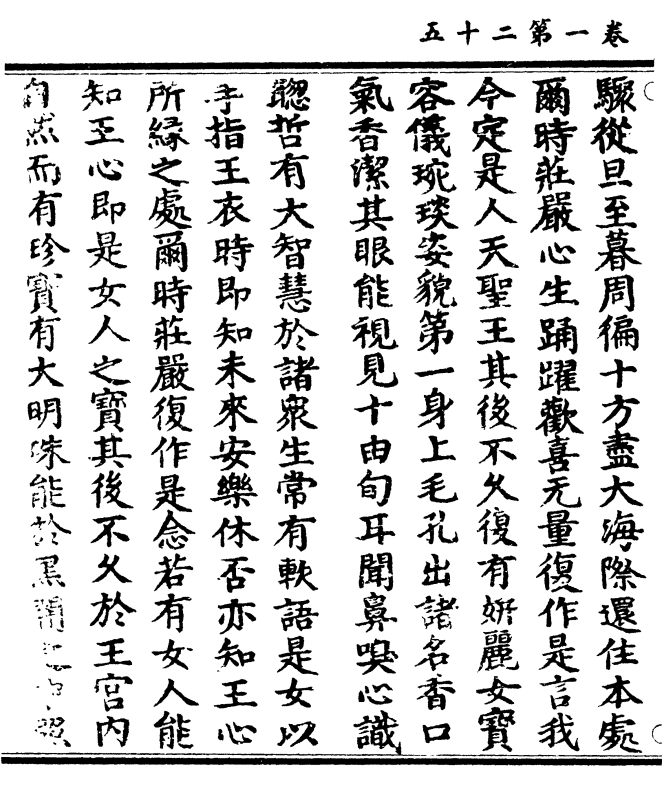 卷一第二十五
驟從旦至暮周徧十方盡大海際還住本處
爾時莊嚴心生踊躍歡喜无量復作是言我
今定是人天聖王其後不久復有姝麗女寶
容儀琬琰姿貌第一身上毛孔出諸名香口
氣香潔其眼能視見十由旬耳聞鼻嗅心識
聦哲有大智慧於諸衆生常有軟語是女以
手指王衣時即知未來安樂休否亦知王心
所緣之處爾時莊嚴復作是念若有女人能
知王心即是女人之寶其後不久於王宮內
自然而有珍寶有大明珠能於黑闇之中照